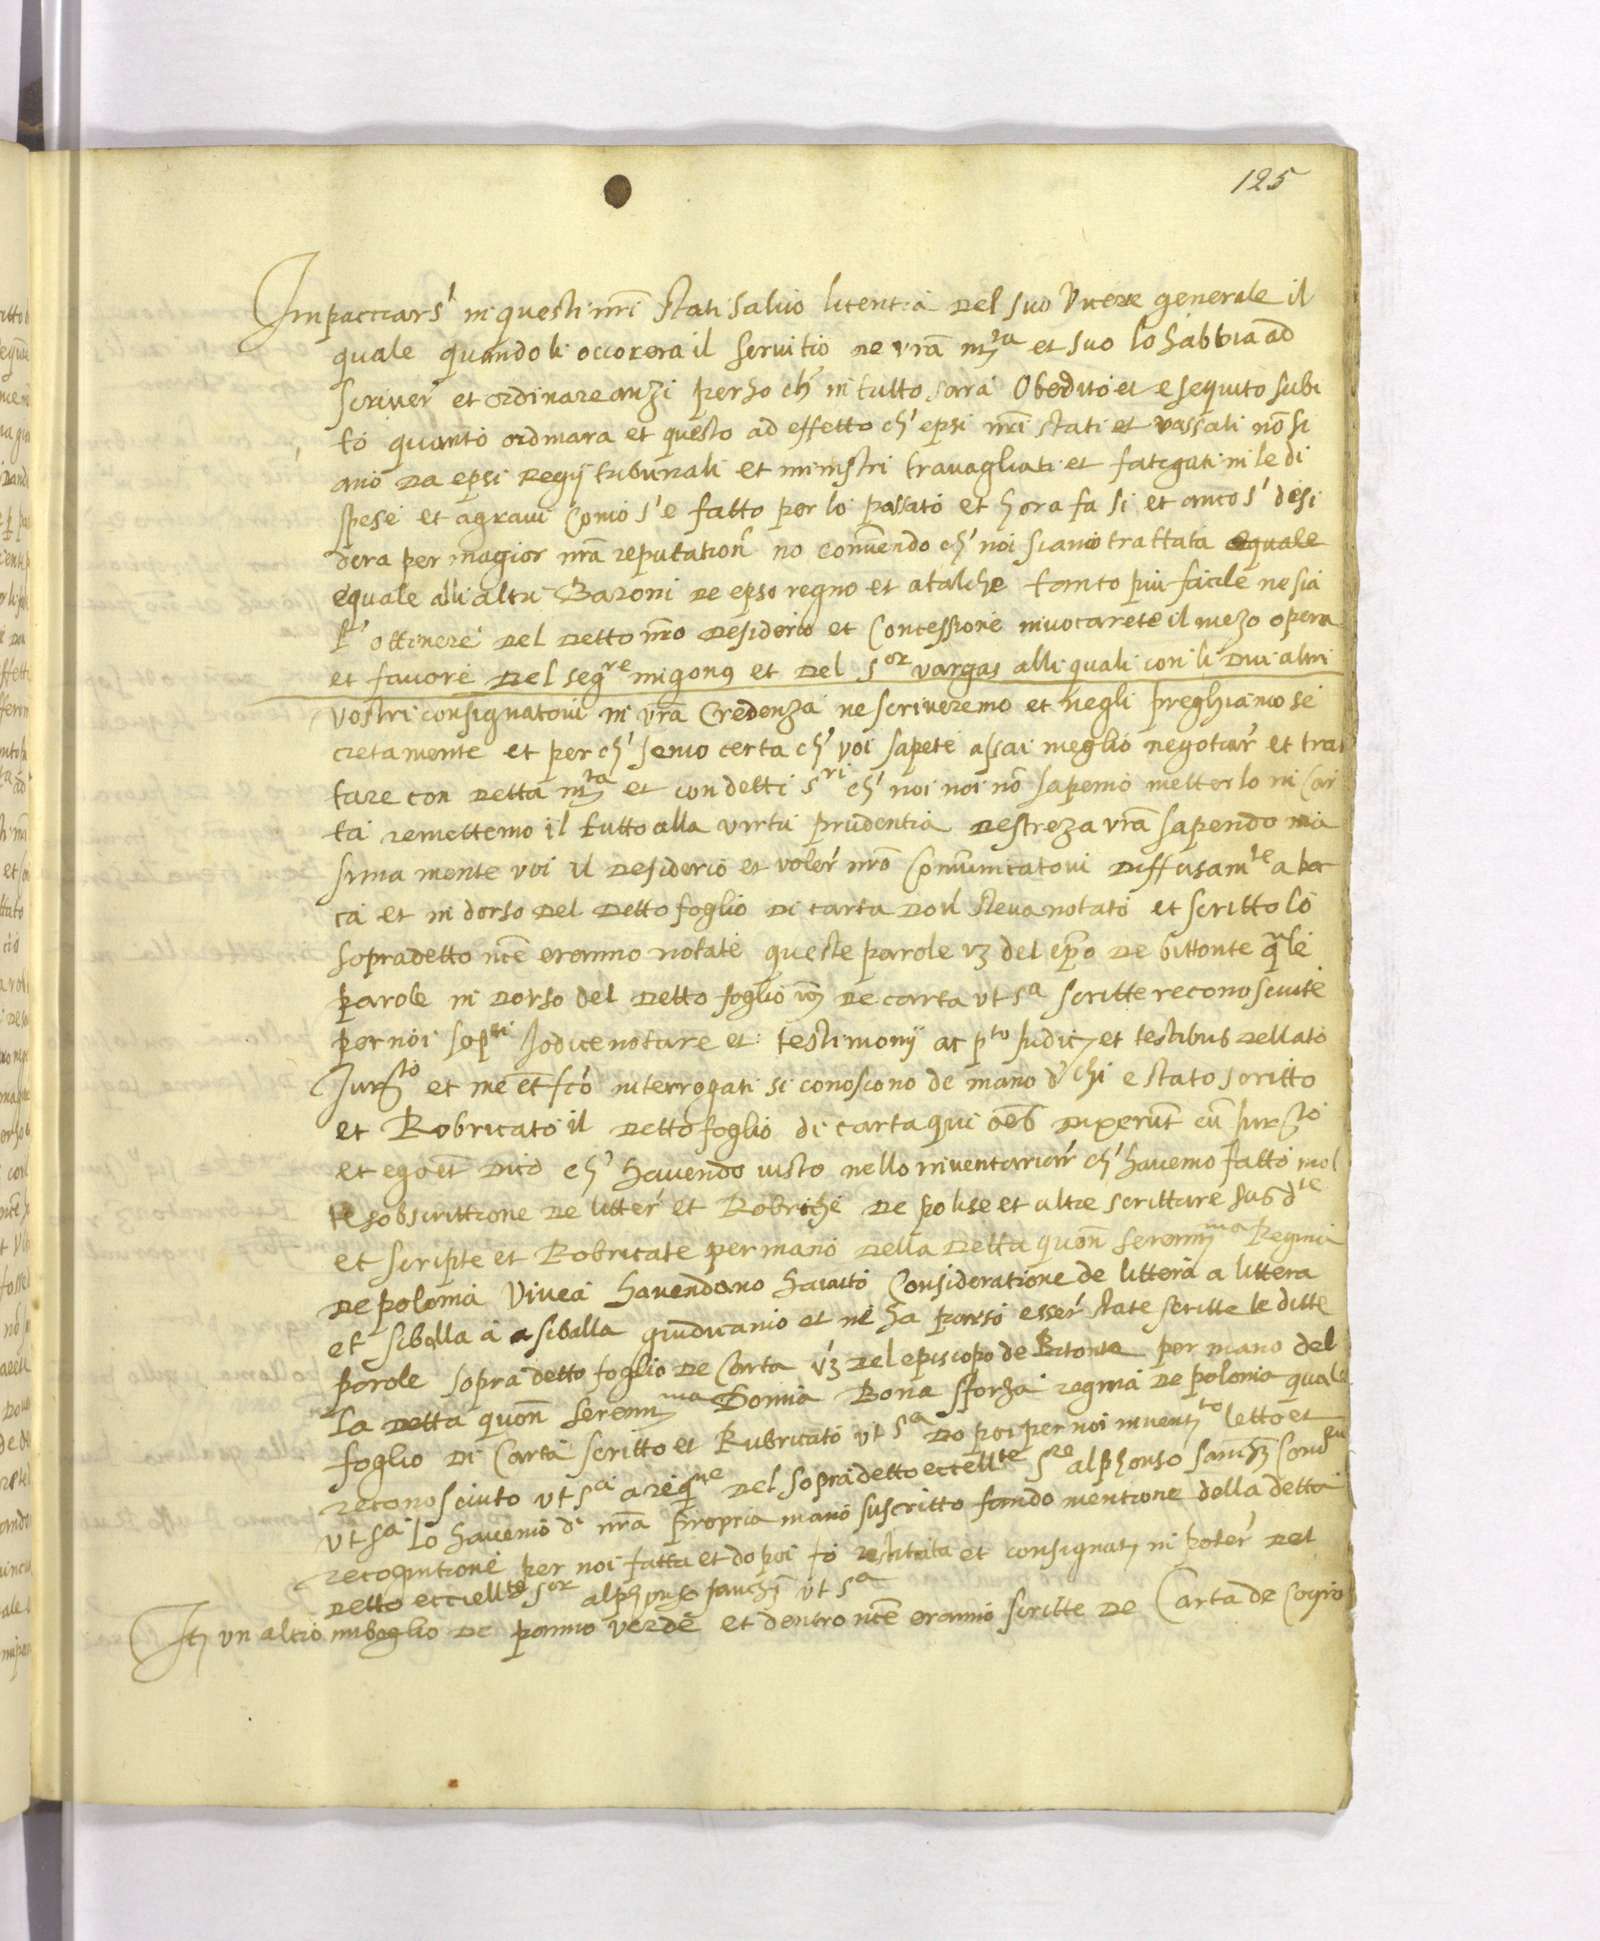 125
Impacciars' in questi nri stati salvo licentia del suo Vicere generale il
quale quando li occorera il servitio ne vra mta et suo lo habbia ad
scriver' et ordinare anzi perho ch' in tutto sarra obedito et esequito subi
to quanto ordinara et questo ad effetto ch' epsi nri stati et vassali no si
ano da epsi Regij tribunali et ministri travagliati et fategati in le di
spese et agravii como s'e fatto per lo passato et hora fa si et anco s' desi
dera per magior nra reputation' no convendo ch' noi siamo trattata equale
equale alli altri Baroni de epso regno et atalche tanto piu facile ne sia
l' ottinere del detto nro desiderio et concessione invocarete il mezo opera
et favore del segre migong et del Sor vargas alli quali con li dui altri
vostri consignatovi in vra Credenza ne scriveremo et negli preghiamo se
cretamente et per ch' semo certa ch' voi sapete assai meglio negotiar' et trat
tare con detta mta et con detti sri ch' noi noi no sapemo metterlo in car
ta remettemo il tutto alla virtu prudentia destreza vra sapendo ma
sima mente voi il desiderio et voler' nro comunicatovi diffusamte a boc
ca et in dorso del detto foglio di carta dov' steva notato et scritto lo
sopradetto nce eranno notate queste parole vz del epo de bittonte qle
parole in dorso del detto foglio de carta ut sa scritte reconosciute
per noi sopti Iodice notare et testimonij ac pto Iudic et testibus dellato
Iurto et me et fco interrogati si conoscono de mano d' chi e stato scritto
et Robricato il detto foglio di carta qui oes dixerut cu Iurto
et ego et dico ch' havendo visto nello inventariar' ch' havemo fatto mol
te sobscrittione de litter' et Robriche de polise et altre scritture sub dte
et scripte et Robricate per mano della detta quon Serenma Regina
de polonia Vivea havendono havuto consideratione de littera a littera
et siballa a a siballa giudicamo et ne ha parso esser' state scritte le ditte
parole sopra detto foglio de carta vz del episcopo de Bitonte per mano del
la detta quon Serenma Donna Bona sforza regina de polonia quale
foglio di carta scritto et Rubricato ut sa do poi per noi inventto letto et
reconosciuto ut sa a reqne del sopradetto eccellte sre alphonso
ut sa lo havemo d' nra propria mano suscritto fando mentione della detta
recognitione per noi fatta et do poi fo restituta et consignat in poter' del
detto eccellte sor alphonso sanchz ut sa
It un altro imboglio de panno verde et dentro nce eranno scritte de Carta de Coyro